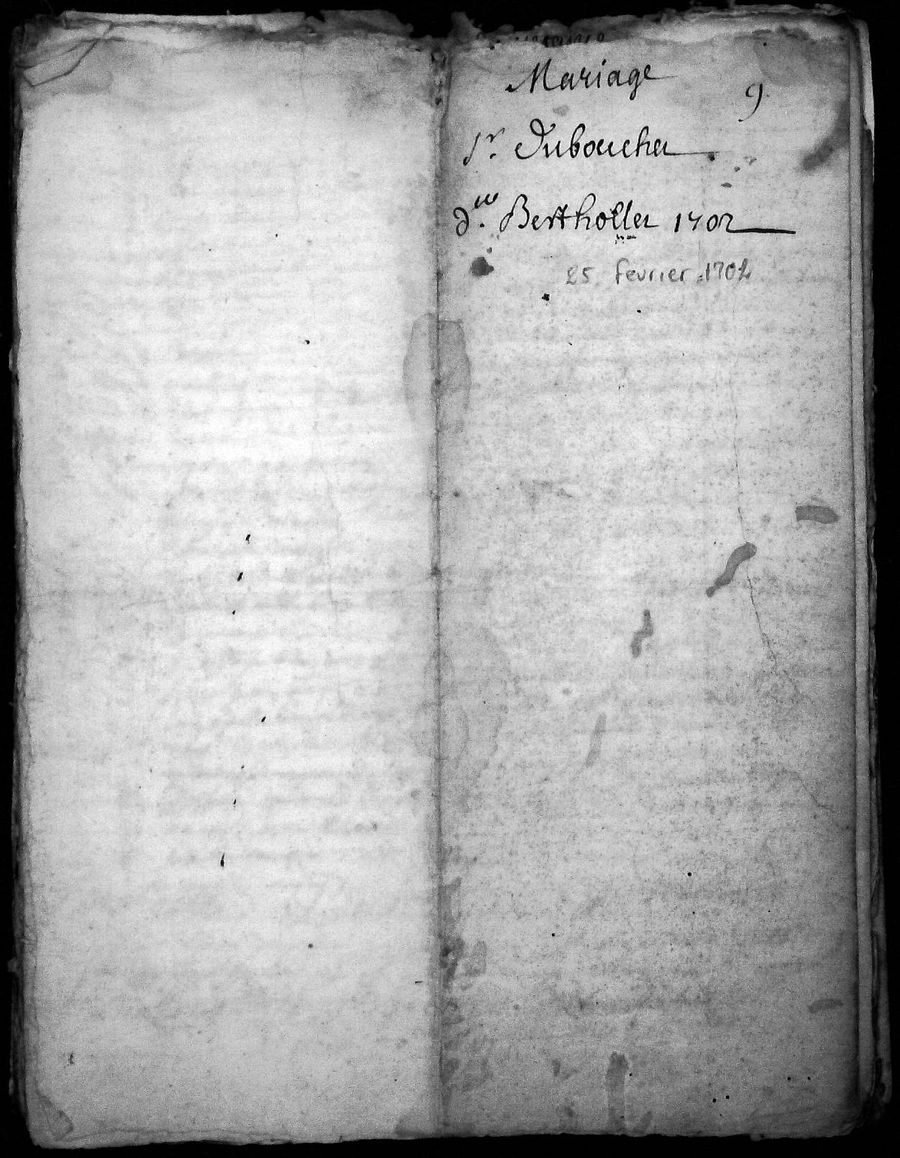 Mariage
9
Sr. Duboucher
dlle. Berthollet 1702
25 février 1702